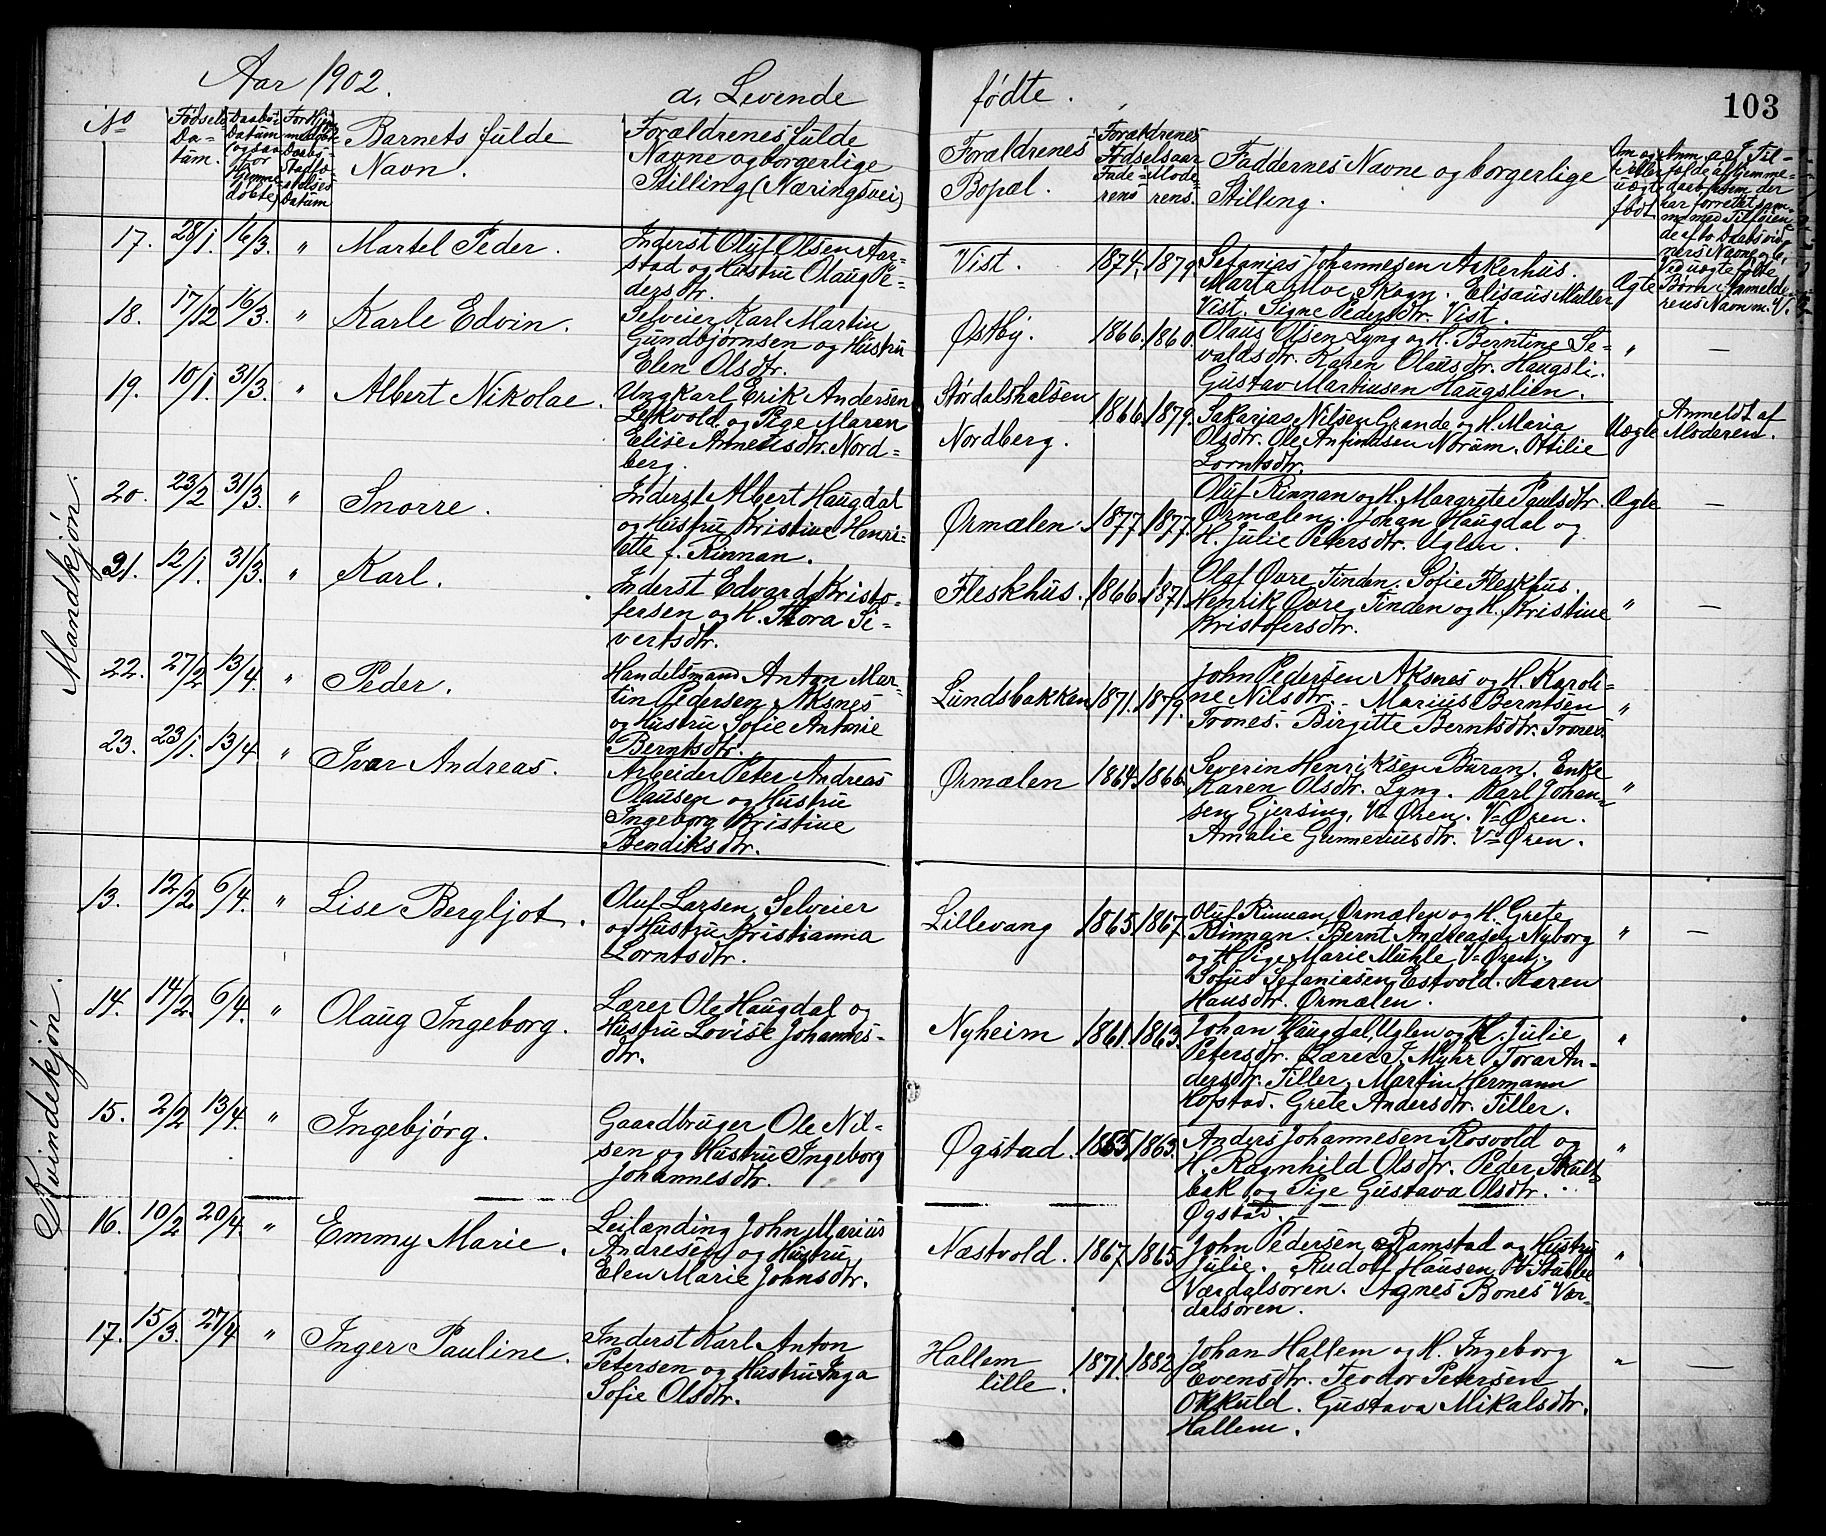 Aar 1902.
a, Levende
fødte.
103
No
Fødsels Da- tum.
Daabs- Datum (ogsaa for Hjemme døbte)
Barnets fulde Navn.
Forældrenes fulde Navne og borgerlige Stilling (Næringsvei)
Forældrenes Bopæl.
Forældrenes Fødselsaar
Faderens
Moderens.
Faddernes Navne og borgerlige Stilling.
Om ægte eller uægte født
Mandkjøn.
17. 28/1. 16/3. " Martel Peder.
Inderst Oluf Olsen Aar-
stad og Hustru Olaug Pe-
dersdtr.
Vist. 1874. 1879.
Sefanias Johannesen Aakerhus.
Marta Moe Skogn. Elisæus Müller
Vist. Signe Pedersdtr. Vist.
Ægte
18. 17/12 16/3. " Karle Edvin.
Selveier Karl Martin
Gundbjørnsen og Hustru
Elen Olsdtr.
Østby. 1866. 1860.
Olaus Olsen Lyng og H. Berntine Se-
valdsdtr. Karen Olausdtr. Haugsli.
Gustav Martinsen Haugslien.
" —
19. 10/1. 31/3. " Albert Nikolae.
Ungkarl Erik Andersen
Lekvold og Pige Maren
Elise Arnetsdtr. Nord-
berg.
Stördalshalsen
Nordberg.
1866. 1879.
Sakarias Nilsen Grande og H. Maria
Olsdtr. Ole Anfindsen Noram. Ottilie
Lorntsdtr.
Uægte
Anmeldt af
Moderen.
20. 23/2 31/3. " Snorre.
Inderst Albert Haugdal
og Hustru Kristine Henri-
ette f. Rinnan.
Ørmælen. 1877. 1877.
Oluf Rinnan og H. Margrete Paulsdtr.
Ørmælen. Johan Haugdal og
H. Julie Petersdtr. Uglen.
Ægte —
21. 12/1. 31/3. " Karl.
Inderst Edvard Kristo-
fersen og H. Thora Si-
vertsdtr.
Fleskhus. 1866. 1871.
Olaf Øvre Tinden. Sofie Fleskhus.
Henrik Øvre Tinden og H. Kristine
Kristofersdtr.
" —
22. 27/2 13/4. " Peder.
Handelsmand Anton Mar-
tin Pedersen Aksnes
og Hustru Sofie Antonie
Berntsdtr.
Lundsbakken 1871. 1879.
John Pedersen Aksnes og H. Karoli-
ne Nilsdtr. Marius Berntsen
Trones. Birgitte Berntsdtr. Trones.
"
23. 23/1. 13/4 " Ivar Andreas.
Arbeider Peter Andreas
Olausen og Hustru
Ingeborg Kristine
Bendiksdtr.
Ørmælen 1864. 1866.
Severin Henriksen Buran. Enke
Karen Olsdtr. Lyng. Karl Johan-
sen Gjersing, V=Øren. V=Øren.
Amalie Gunneriusdtr. V=Øren.
"
Kvindekjøn.
13. 12/2. 6/4. " Lise Bergljot.
Oluf Larsen, Selveier
og Hustru Kristianna
Lorntsdtr.
Lillevang 1865. 1867.
Oluf Rinnan, Ørmælen og H. Grete
Rinnan. Bernt Andreasen Nyborg
og H. Pige Marie Mühle V=Øren.
Sofus Sefaniasen, Estvold. Karen
Hansdtr. Ørmælen.
" —
14. 14/2. 6/4. " Olaug Ingeborg.
Lærer Ole Haugdal og
Hustru Lovise Johannes-
dtr.
Nyheim 1861. 1863.
Johan Haugdal, Uglen og H. Julie
Petersdtr. Lærer J. Myhr. Tora An-
dersdtr. Tiller. Martin Hermann
Hofstad. Grete Andersdtr. Tiller.
"
15. 2/2 13/4. " Ingebjørg.
Gaardbruger Ole Nil-
sen og Hustru Ingeborg
Johannesdtr.
Øgstad. 1865. 1863.
Anders Johannesen Rosvold og
H. Ragnhild Olsdtr. Peder Skult-
bak og Pige Gustava Olsdtr.
Øgstad.
"
16. 10/2 20/4. " Emmy Marie.
Leilænding John Marius
Andresen og Hustru
Elen Marie Johnsdtr.
Næstvold. 1867. 1865.
John Pedersen Ramstad og Hustru
Julie. Rudolf Hansen
Værdalsøren. Agnes Bones Vær-
dalsøren.
"
17. 15/3. 27/4 " Inger Pauline.
Inderst Karl Anton
Petersen og Hustru Inga
Sofie Olsdtr.
Hallem
lille.
1871. 1882
Johan Hallem og H. Ingeborg
Evensdtr. Teodor Petersen
Okkuld. Gustava Mikalsdtr.
Hallem.
" —